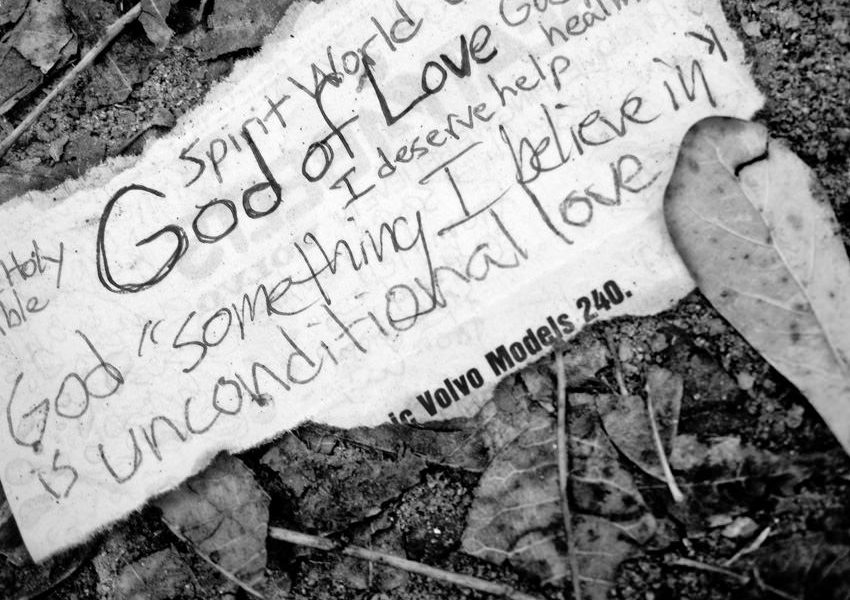 Spirit World
God of Love
I deserve help
Holy
God "something I believe in"
is unconditional love
Volvo Models 240.